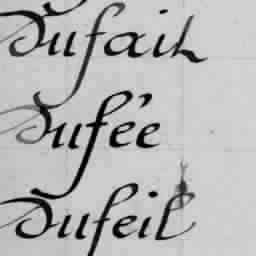 Dufail
Dufée
Dufeil